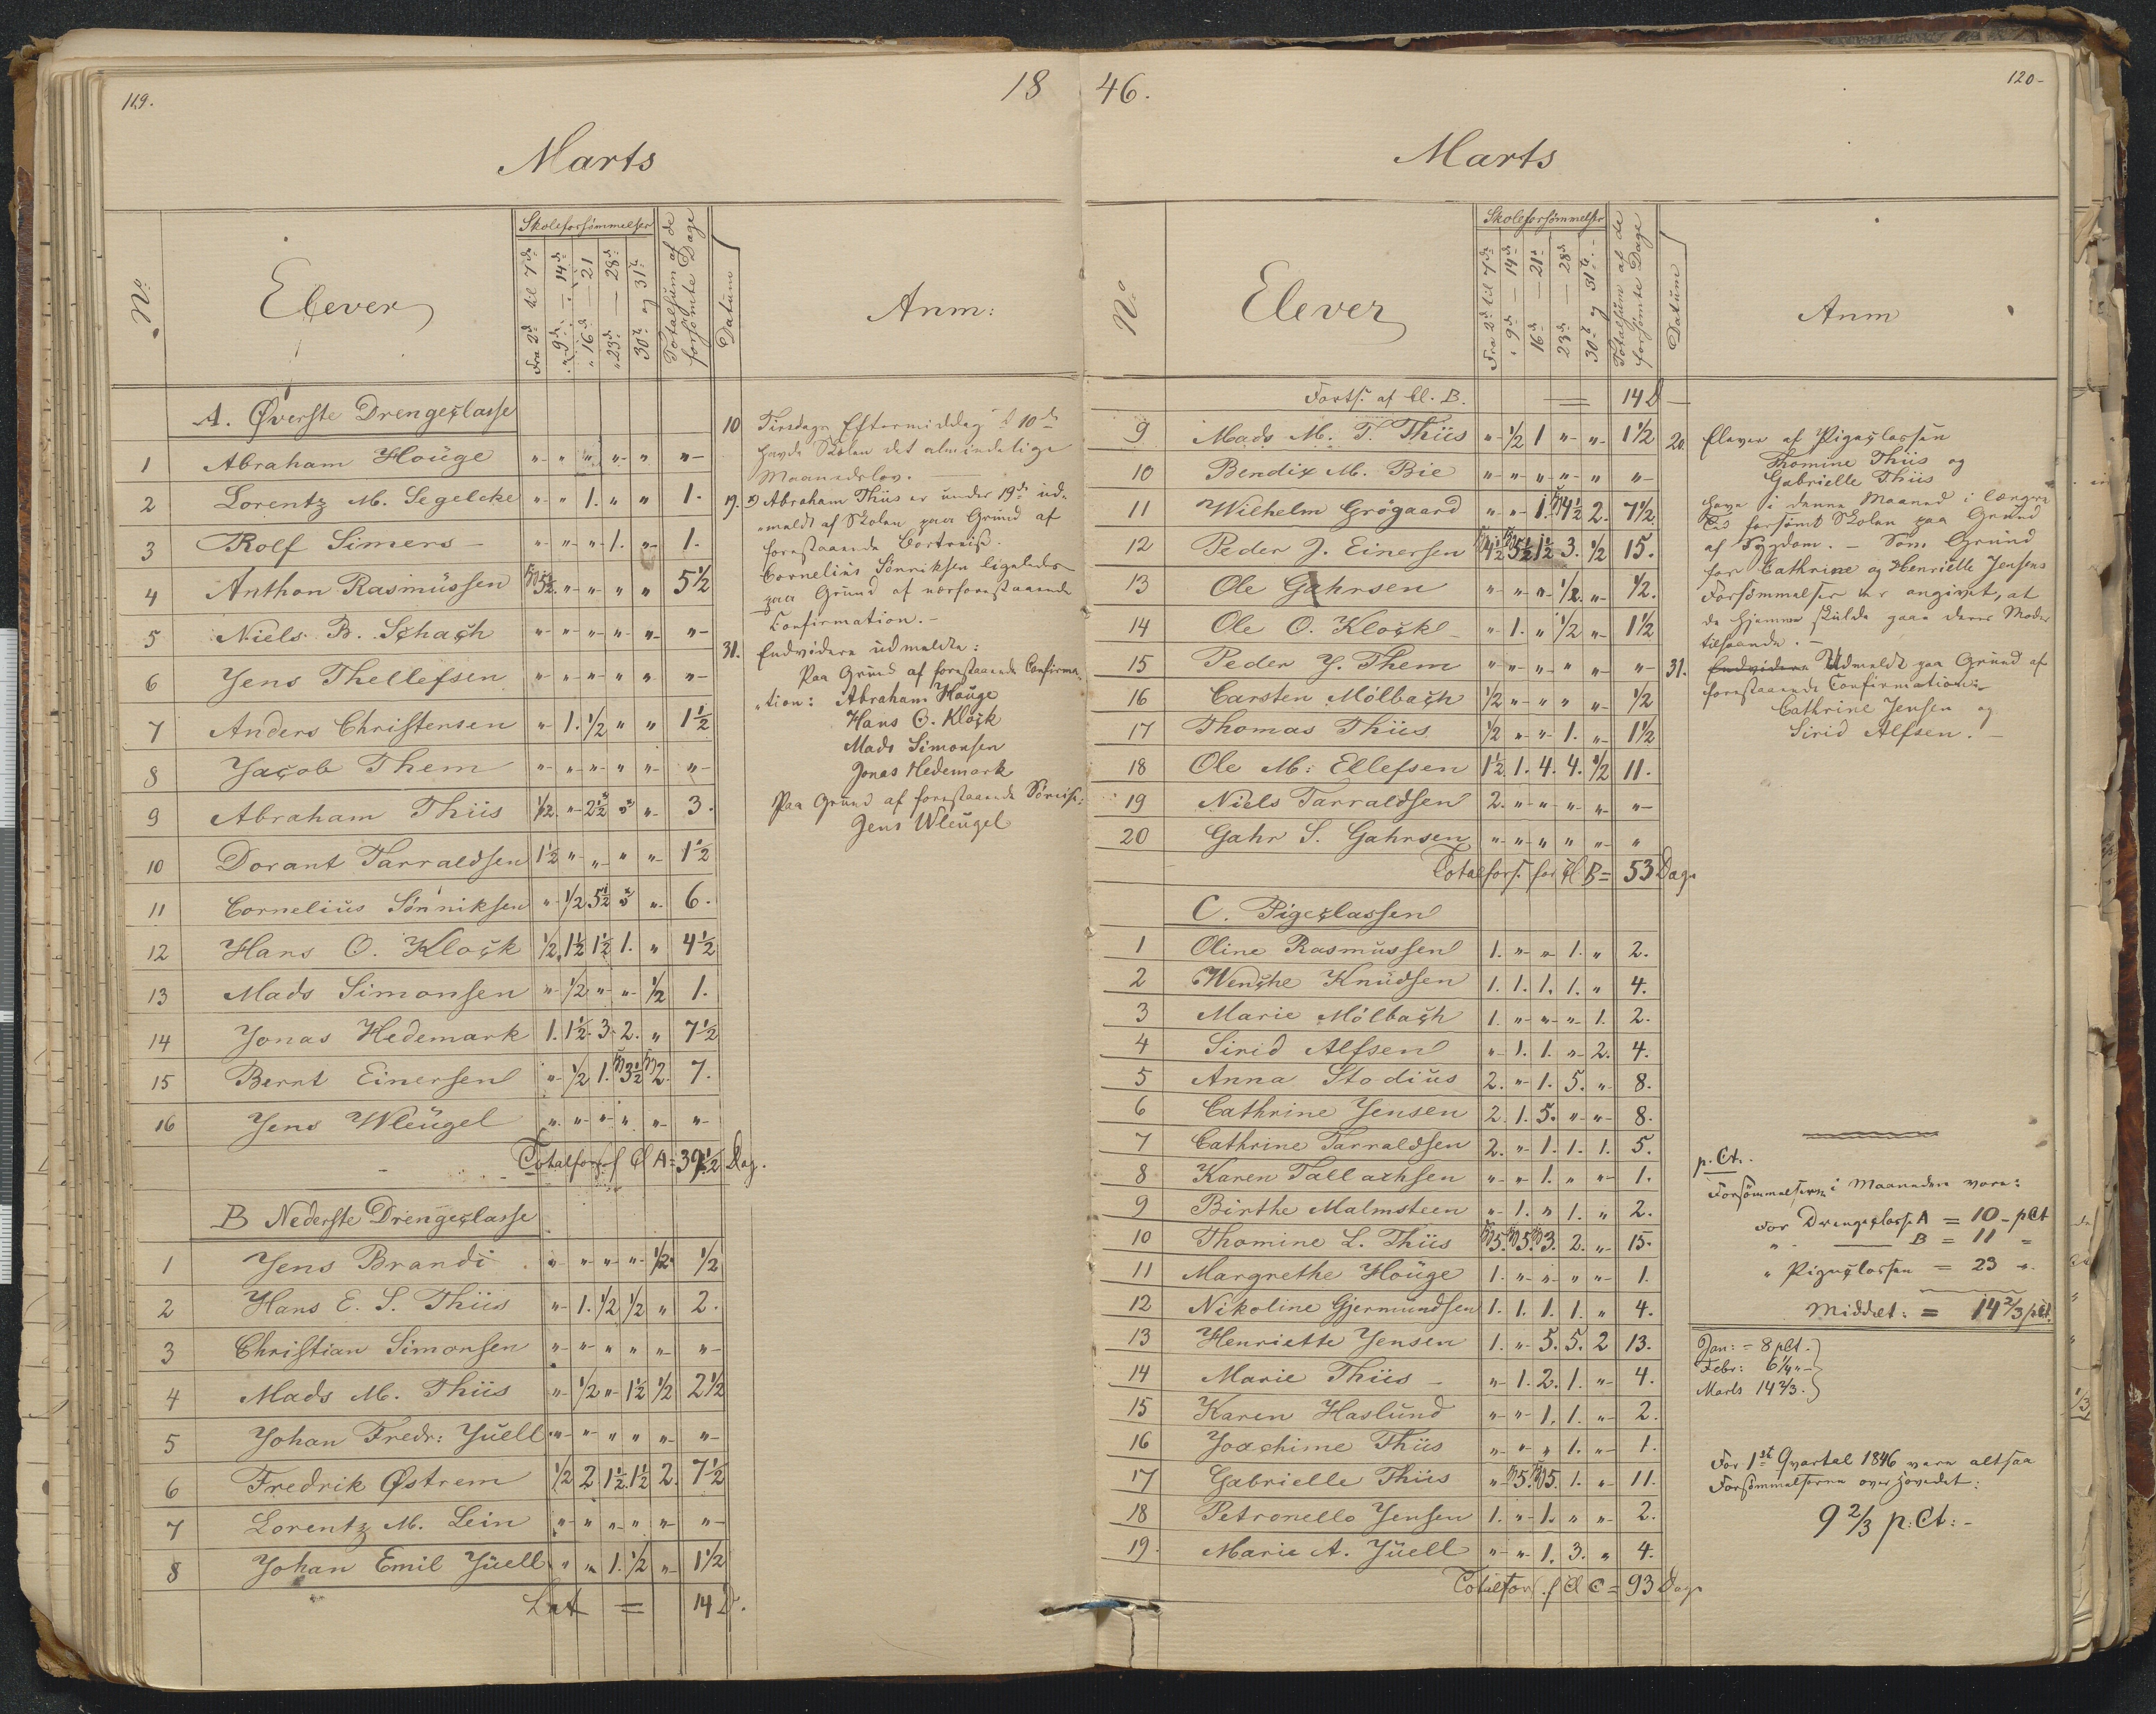 119.
18
Marts
No
Elever
Skoleforsømmelser
Fra 2d til 7de
" 9de — 14de
" 16de — 21
" 23de — 28de
30te og 31te
Totalsum af de forsømte Dage
Datum
Anm:
A. Øverste Drengeclasse
1 Abraham Houge " " " " " "
2 Lorentz M. Segelcke " " 1. " " 1.
3 Rolf Simers " " " 1. " 1.
4 Anthon Rasmussen 5½. " " " " 5½
5 Niels B. Schach " " " " " "
6 Jens Thellefsen " " " " " "
7 Anders Christensen " 1. ½ " " 1½
8 Jacob Them " " " " " "
9 Abraham Thiis ½. " 2½ " 3.
10 Dorant Tarraldsen 1½ " " " " 1½
11 Cornelius Sønniksen " ½ 5½ " 6.
12 Hans O. Klock ½. 1½ 1½ 1. " 4½
13 Mads Simonsen " ½ " " ½ 1.
14 Jonas Hedemark 1. 1½. 3. 2. " 7½
15 Bernt Einersen " ½ 1. 3½ 2. 7.
16 Jens Wleugel " " " " " "
Totalfors. f Cl A = 39½ Dag.
B Nederste Drengeclasse
1 Jens Brandi " " " " ½. ½
2 Hans E. S. Thiis " 1. ½ ½ " 2.
3 Christian Simonsen " " " " " "
4 Mads M. Thiis " ½ " 1½ ½ 2½
5 Johan Fredr: Juell " " " " " "
6 Fredrik Østrem ½ 2 1½. 1½ 2. 7½
7 Lorentz M. Lein " " " " " "
8 Johan Emil Juell " " 1. ½ " 1½
Lat = 14 D.
10 Tirsdags Eftermiddag d 10de
havde Skolen det almindelige
Maanedslov.
19. Abraham Thiis er under 19de ud-
"meldt af Skolen paa Grund af
forestaaende Bortreise.
Cornelius Sønniksen ligeledes
paa Grund af nærforestaaende
Confirmation.-
31. Endvidere udmeldte:
Paa Grund af forestaaende Confirma-
"tion: Abraham Houge
Hans O. Klock
Mads Simonsen
Jonas Hedemark
Paa Grund af forestaaende Søreise:
Jens Wleugel
46.
120-
Marts
No
Elever
Skoleforsømmelser
Fra 2d til 7de
" 9de — 14de
16de — 21de
23de — 28de
30te og 31te
Totalsum af de forsømte Dage
Datum
Anm
Forts. af Cl. B. = 14 D
9 Mads M. T. Thiis " ½ 1 " " 1½
10 Bendix M. Bie " " " " " "
11 Wilhelm Grøgaard " " 1. 4½ 2. 7½.
12 Peder J. Einersen 4½ 5½ 1½ 3. ½ 15.
13 Ole Gahrsen " " " ½. " ½.
14 Ole O. Klock " 1. " ½ " 1½
15 Peder J. Them " " " " " "
16 Carsten Mölbach ½ " " " " ½
17 Thomas Thiis ½ " " 1. " 1½
18 Ole M: Ellefsen 1½. 1. 4. 4. ½ 11.
19 Niels Tarraldsen 2. " " " " "
20 Gahr S. Gahrsen " " " " " "
Totalfors. for Cl B = 53 Dage
C. Pigeclassen
1 Oline Rasmussen 1. " " 1. " 2.
2 Wenche Knudsen 1. 1. 1. 1. " 4.
3 Marie Mölbach 1. " " " 1. 2.
4 Sirid Alfsen " 1. 1. " 2. 4.
5 Anna Stodius 2. " 1. 5. " 8.
6 Cathrine Jensen 2. 1. 5. " " 8.
7 Cathrine Tarraldsen 2. " 1. 1. 1. 5.
8 Karen Tallachsen " " 1. " " 1.
9 Birthe Malmsteen " 1. " 1. " 2.
10 Thomine L. Thiis 5. 5. 3. 2. " 15.
11 Margrethe Houge 1. " " " " 1.
12 Nikoline Gjermundsen 1. 1. 1. 1. " 4.
13 Henriette Jensen 1. " 5. 5. 2 13.
14 Marie Thiis " 1. 2. 1. " 4.
15 Karen Haslund " " 1. 1. " 2.
16 Joachime Thiis " " " 1. " 1.
17 Gabrielle Thiis " 5. 5. 1. " 11.
18 Petronello Jensen 1. " 1. " " 2.
19. Marie A. Juell " " 1. 3. " 4.
Totalfors. f Cl C = 93 Dage
20. Elever af Pigeclassen
Thomine Thiis og
Gabrielle Thiis
have i denne Maaned i længere
Tid forsømt Skolen paa Grund
af Sygdom. - Som Grund
for Cathrine og Henriette Jensens
Forsømmelser er angivet, at
de hjemme skulde gaae deres Moder
tilhaande.-
31. Endvidere Udmeldt paa Grund af
forestaaende Confirmation:
Cathrine Jensen og
Sirid Alfsen.-
p. Ct.
Forsømmelserne i Maaneden vare:
For Drengeclasse A = 10 - pCt
" — B = 11 =
" Pigeclassen = 23 "
Middelt: = 14⅔ pCt.
Jan: = 8 pCt.
Febr: 6¼ "
Marts 14⅔.
For 1st Qvartal 1846 vare altsaa
Forsømmelserne overhovedet:
9⅔ p:Ct:-